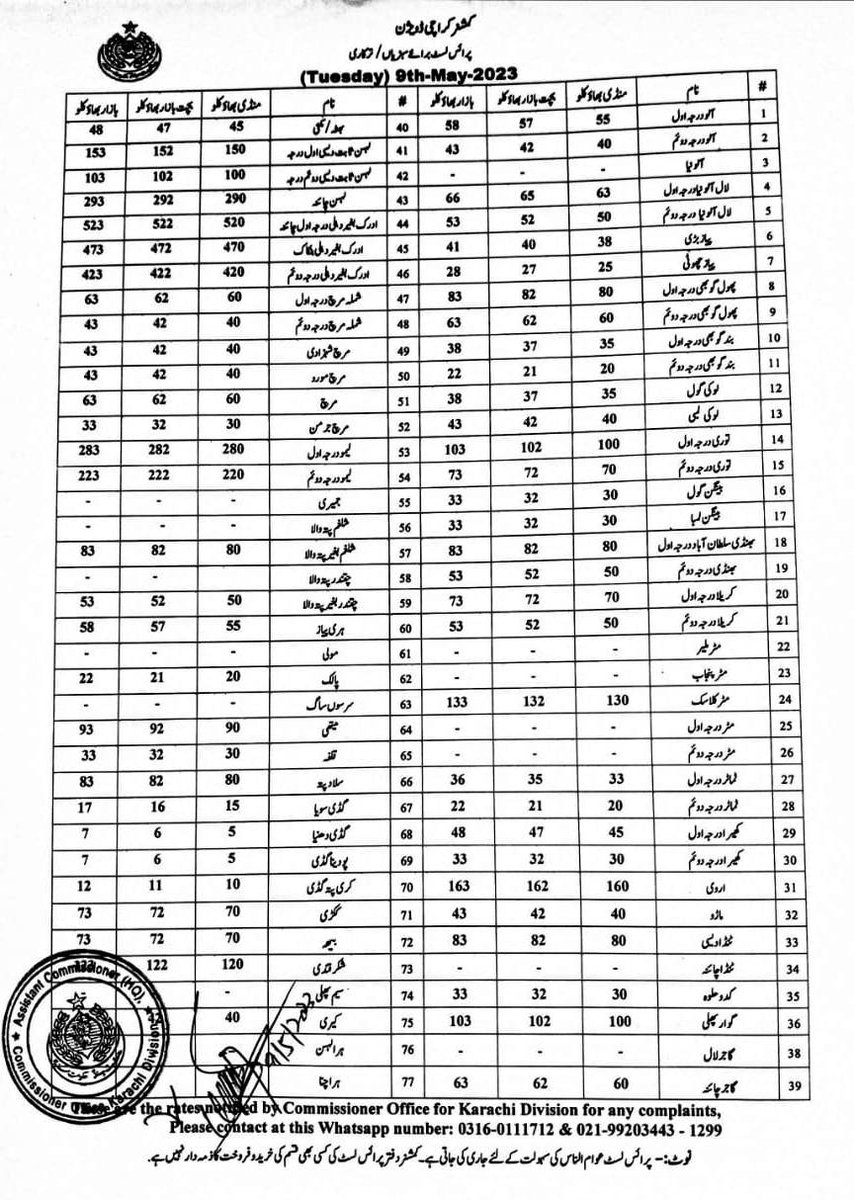 کمشنر کراچی ڈویژن
پرائس لسٹ برائے سبزیاں / ترکاری
(Tuesday) 9th-May-2023
# نام منڈی بھاؤ کلو بچت بازار بھاؤ کلو بازار بھاؤ کلو # نام منڈی بھاؤ کلو بچت بازار بھاؤ کلو بازار بھاؤ کلو
1 آلو درجہ اول 55 57 58 40 بھٹہ / مکئی 45 47 48
2 آلو درجہ دوئم 40 42 43 41 لہسن ثابت دیسی اول درجہ 150 152 153
3 آلو نیا - - - 42 لہسن ثابت دیسی دوئم درجہ 100 102 103
4 لال آلو نیا درجہ اول 63 65 66 43 لہسن چائنہ 290 292 293
5 لال آلو نیا درجہ دوئم 50 52 53 44 ادرک بغیر دھلی درجہ اول چائنہ 520 522 523
6 پیاز بڑی 38 40 41 45 ادرک بغیر دھلی بنکاک 470 472 473
7 پیاز چھوٹی 25 27 28 46 ادرک بغیر دھلی درجہ دوئم 420 422 423
8 پھول گوبھی درجہ اول 80 82 83 47 شملہ مرچ درجہ اول 60 62 63
9 پھول گوبھی درجہ دوئم 60 62 63 48 شملہ مرچ درجہ دوئم 40 42 43
10 بند گوبھی درجہ اول 35 37 38 49 مرچ شہزادی 40 42 43
11 بند گوبھی درجہ دوئم 20 21 22 50 مرچ مورو 40 42 43
12 لوکی گول 35 37 38 51 مرچ 60 62 63
13 لوکی لمبی 40 42 43 52 مرچ جرمن 30 32 33
14 توری درجہ اول 100 102 103 53 لیمو درجہ اول 280 282 283
15 توری درجہ دوئم 70 72 73 54 لیمو درجہ دوئم 220 222 223
16 بینگن گول 30 32 33 55 جمیری - - -
17 بینگن لمبا 30 32 33 56 شلغم پتہ والا - - -
18 بھنڈی سلطان آباد درجہ اول 80 82 83 57 شلغم بغیر پتہ والا 80 82 83
19 بھنڈی درجہ دوئم 50 52 53 58 چقندر پتہ والا - -
20 کریلا درجہ اول 70 72 73 59 چقندر بغیر پتہ والا 50 52 53
21 کریلا درجہ دوئم 50 52 53 60 ہری پیاز 55 57 58
22 مٹر ملیر - - - 61 مولی - - -
23 مٹر پنجاب - - - 62 پالک 20 21 22
24 مٹر کلاسک 130 132 133 63 سرسوں ساگ - - -
25 مٹر درجہ اول - - - 64 میتھی 90 92 93
26 مٹر درجہ دوئم - - - 65 قلفہ 30 32 33
27 ٹماٹر درجہ اول 33 35 36 66 سلاد پتہ 80 82 83
28 ٹماٹر درجہ دوئم 20 21 22 67 گڈی سویا 15 16 17
29 کھیرا درجہ اول 45 47 48 68 گڈی دھنیا 5 6 7
30 کھیرا درجہ دوئم 30 32 33 69 پودینا گڈی 5 6 7
31 اروی 160 162 163 70 کری پتہ گڈی 10 11 12
32 مارو 40 42 43 71 ککڑی 70 72 73
33 ٹنڈا دیسی 80 82 83 72 بیھ 70 72 73
34 ٹنڈا چائنہ - - - 73 شکر قندی 120 122 123
35 کدو حلوہ 30 32 33 74 سیم پھلی -
36 گوار پھلی 100 102 103 75 کیری 40
38 گاجر لال - - - 76 ہرا لہسن
39 گاجر چائنہ 60 62 63 77 ہرا چنا
Assistant Commissioner (HQ),
Commissioner Office Karachi Division
9/5/2023
These are the rates notified by Commissioner Office for Karachi Division for any complaints,
Please contact at this Whatsapp number: 0316-0111712 & 021-99203443 - 1299
نوٹ:- پرائس لسٹ عوام الناس کی سہولت کے لئے جاری کی جاتی ہے۔ کمشنر دفتر پرائس لسٹ کی کسی بھی قسم کی خرید و فروخت کا ذمہ دار نہیں ہے۔